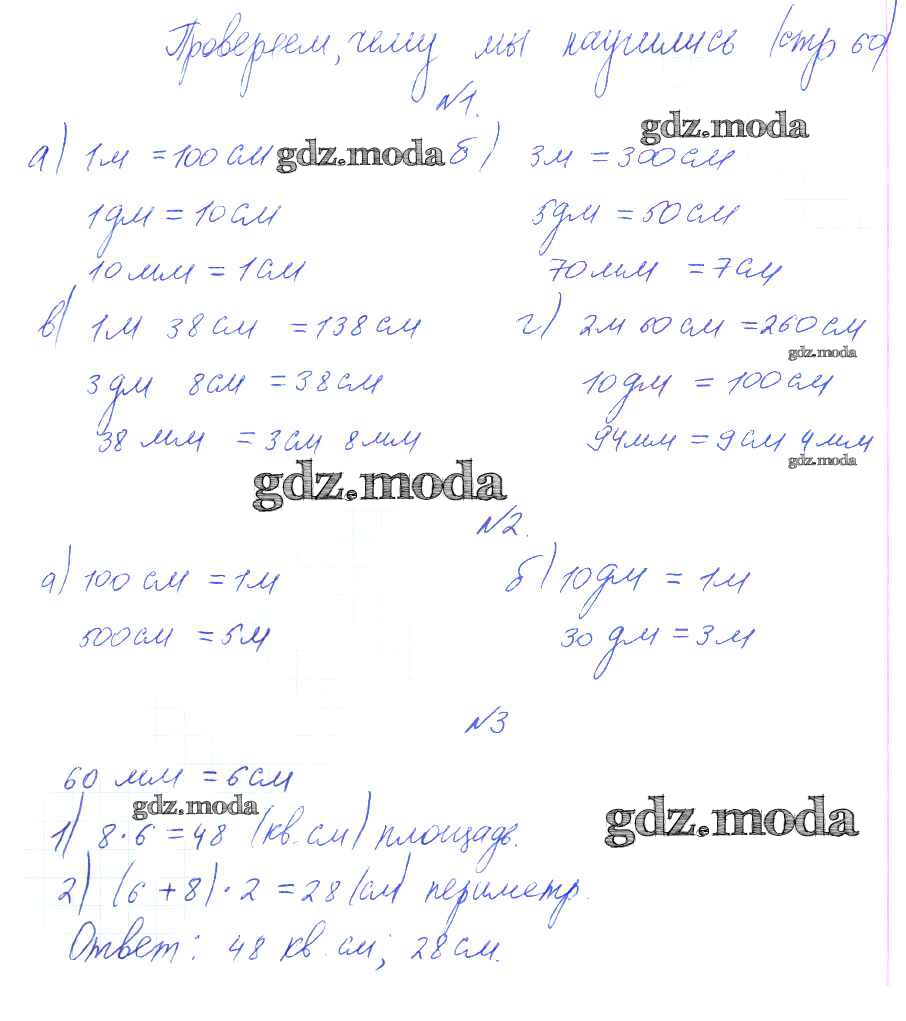 Проверяем, чему мы научились (стр 60)
№1.
gdz.moda
а) 1м = 100 см gdz.moda б) 3м = 300 см
1дм = 10 см 5дм = 50 см
10 мм = 1 см 70 мм = 7 см
в) 1м 38 см = 138 см г) 2м 60 см = 260 см
gdz.moda
3 дм 8 см = 38 см 10 дм = 100 см
38 мм = 3 см 8 мм 94 мм = 9 см 4 мм
gdz.moda
gdz.moda
№2.
а) 100 см = 1м б) 10 дм = 1м
500 см = 5м 30 дм = 3м
№3
60 мм = 6 см
gdz.moda
gdz.moda
1) 8 · 6 = 48 (кв. см) площадь.
2) (6 + 8) · 2 = 28 (см) периметр.
Ответ: 48 кв. см; 28 см.